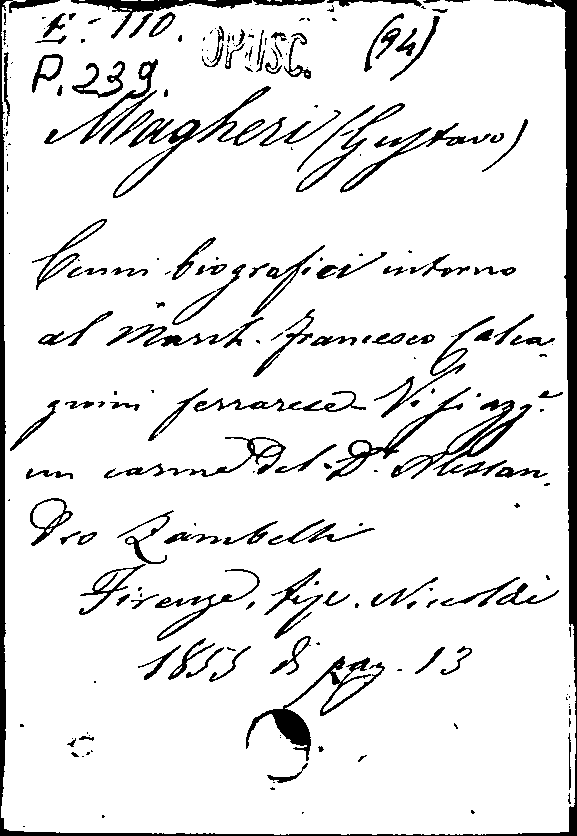 E. 110. OPUSC. (94)
P. 239.
Magheri (Gustavo)
Cenni biografici intorno
al March. Francesco Calca-
gnini ferrarese. Vi si agge
un carme del Dr. Alessan-
dro Zambelli
Firenze, tip. Niccolai
1855 di pag. 13